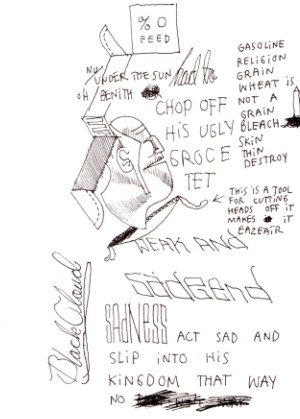 % O
FEED
NU UNDER THE SUN
OH BENITH
had to
CHOP OFF
HIS UGLY
GROCE
TET
GASOLINE
RELIGION
GRAIN
WHEAT IS
NOT A
GRAIN
BLEACH
SKIN
THIN
DESTROY
THIS IS A TOOL
FOR CUTTING
HEADS OFF IT
MAKES IT
EAZEAIR
WEAK AND
SADGEND
SADNESS ACT SAD AND
SLIP INTO HIS
KINGDOM THAT WAY
NO
Black Cloud